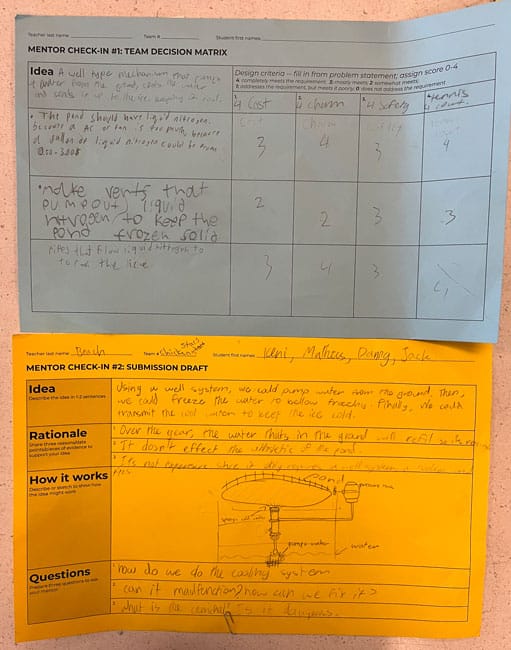 Teacher last name Team # Student first names
MENTOR CHECK-IN #1: TEAM DECISION MATRIX
Idea A well type mechanism that pumps
water from the ground, cools the water
and sends it up to the ice, keeping it cool.
Design criteria – fill in from problem statement; assign score 0-4
4: completely meets the requirement; 3: mostly meets; 2: somewhat meets;
1: addresses the requirement, but meets it poorly; 0: does not address the requirement
1. 4 Cost
2. 4 charm
3. 4 Safety
4. tennis
4 court.
• The pond should have liquid nitrogen.
because a AC or fan is too much because
a gallon of liquid nitrogen could be from
3
4
3
4
• make vents that
pump out liquid
nitrogen to keep the
pond frozen solid
2
2
3
3
Pipes that flow liquid nitrogen to
the ice
3
4
3
4
Teacher last name Beach Team # Chicken Student first names Keni, Mathias, Dang, Jack
MENTOR CHECK-IN #2: SUBMISSION DRAFT
Idea
Describe the idea in 1-2 sentences
Using a well system, we could pump water from the ground, Then,
we could freeze the water to bellow freezing. Finally, we could
transmit the cool water to keep the ice cold.
Rationale
Share three reasons/data
points/pieces of evidence to
support your idea
1. Over the year, the water thats in the ground will refil
2. It dosn't effect the of the pond.
3. It's not expensive since it a well system
How it works
Describe or sketch to show how
the idea might work
pond
pressure tank
pump
water
Questions
Prepare three questions to ask
your mentor
1. how do we do the cooling system
2. can it malfunction? how can we fix it?
3. what is the Is it dangerous.